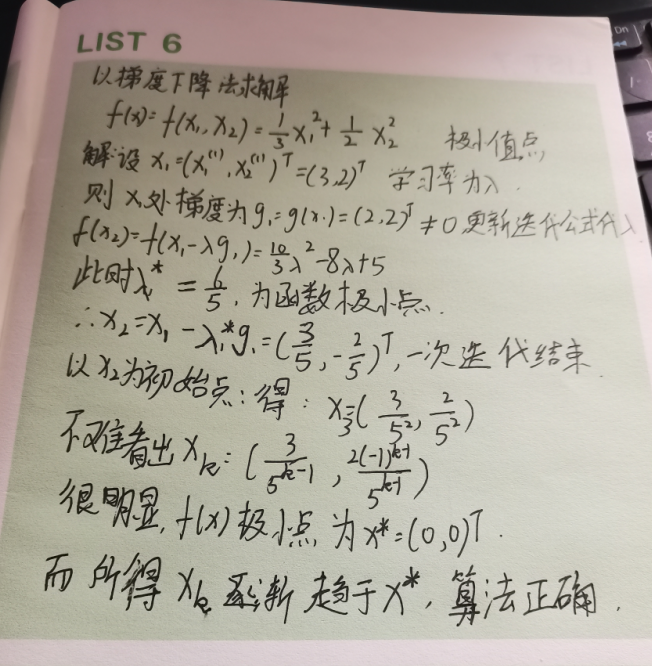 LIST 6
以梯度下降法求解
f(x)=f(x₁,x₂)=1/3 x₁²+1/2 x₂² 极小值点
解:设 x₁=(x₁⁽¹⁾,x₂⁽¹⁾)ᵀ=(3,2)ᵀ 学习率为λ.
则 x₁处梯度为 g₁=g(x₁)=(2,2)ᵀ≠0 更新迭代公式代入
f(x₂)=f(x₁-λg₁)=10/3 λ²-8λ+5
此时λ₁*=6/5,为函数极小点.
∴x₂=x₁-λ₁*g₁=(3/5,-2/5)ᵀ,一次迭代结束.
以x₂为初始点:得:x₃=(3/5²,2/5²)
不难看出 xₖ=(3/5ᵏ⁻¹,2(-1)ᵏ⁻¹/5ᵏ⁻¹)
很明显,f(x)极小点为x*=(0,0)ᵀ.
而所得xₖ逐渐趋于x*,算法正确.